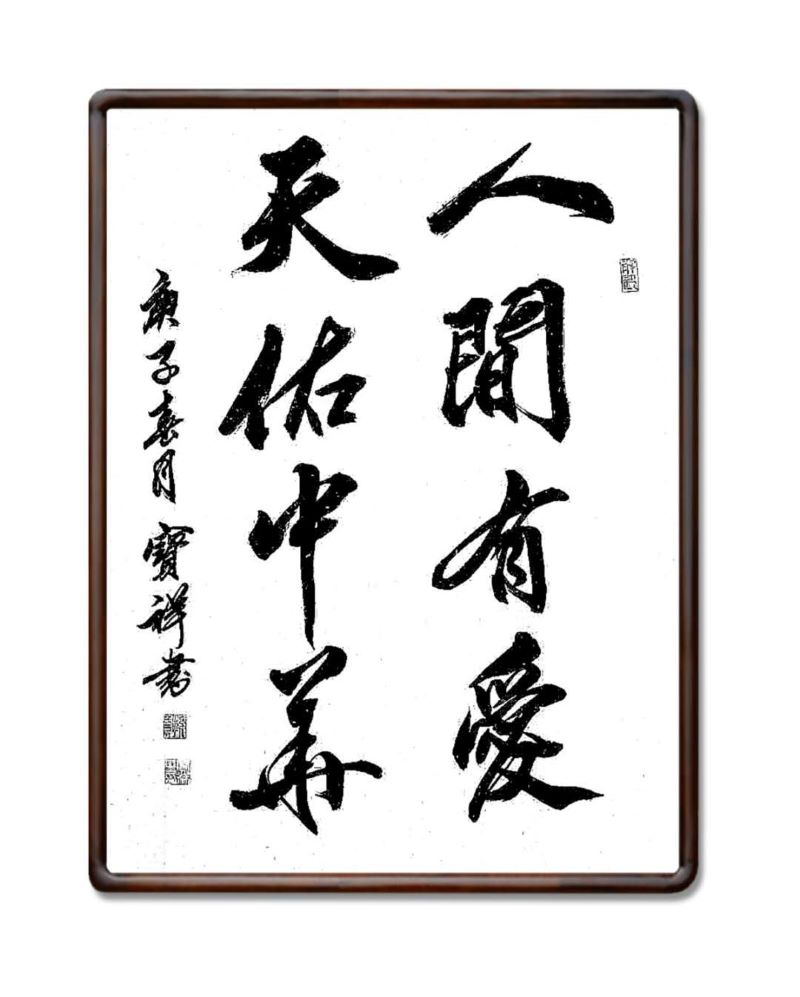 人間有愛
天佑中華
庚子春月寶祥書